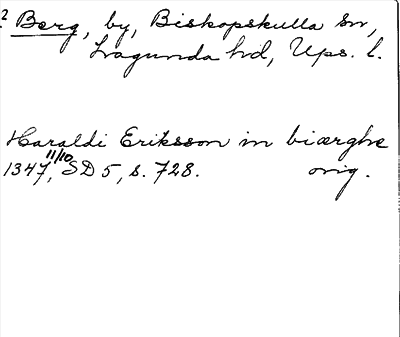 ? Berg, by, Biskopskulla sn,
Lagunda hd, Ups. l.
Haraldi Eriksson in biærghe
1347 11/10, SD 5, s. 728. orig.